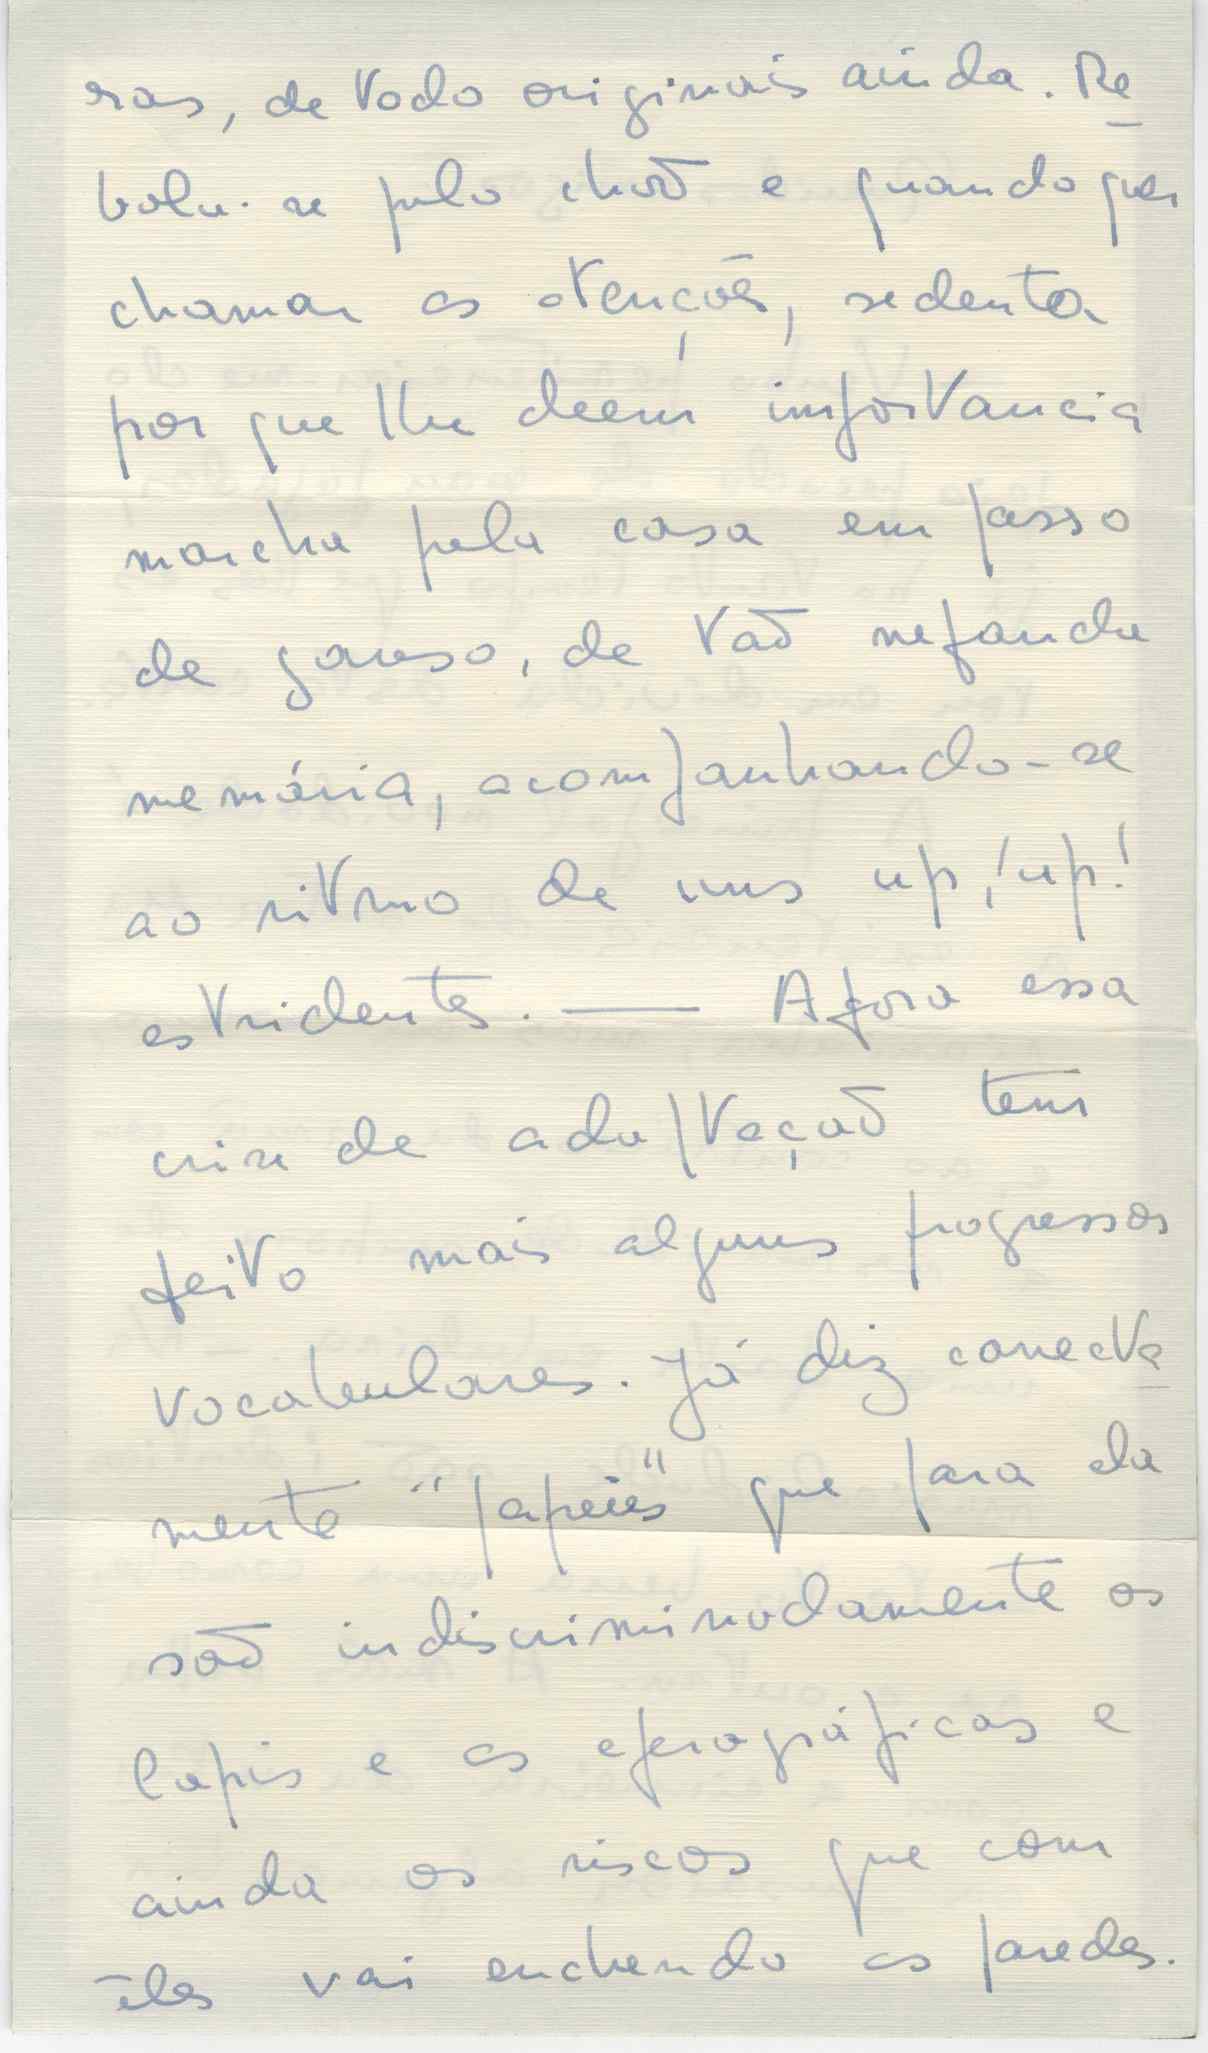 ras, de todo originais ainda. Re
bola-se pelo chaõ e quando quer
chamar as atençoẽs, sedenta
por que lhe deem importancia
marcha pela casa em passo
de ganso, de taõ nefanda
memória, acompanhando-se
ao ritmo de uns up! up!
estridentes. — Agora essa
crise de adaptaçaõ tem
feito mais alguns progressos
vocabulares. Já diz correcta
mente "papeies" que para ela
saõ indiscriminadamente os
lapis e as eferográficas e
ainda os riscos que com
êles vai enchendo as paredes.